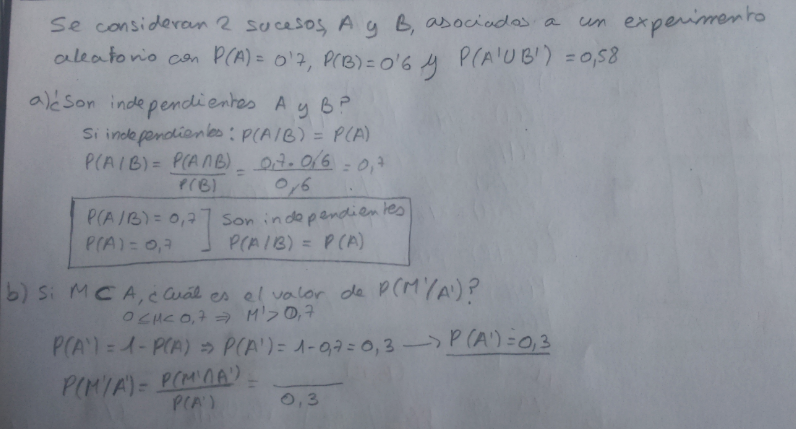 Se consideran 2 sucesos, A y B, asociados a un experimento
aleatorio con P(A)= 0'7, P(B)=0'6 y P(A'UB') = 0,58
a) ¿Son independientes A y B?
Si independientes: P(A/B) = P(A)
P(A/B)= P(A∩B)/P(B) = 0,7·0,6/0,6 = 0,7
P(A/B)= 0,7 ] Son independientes
P(A)=0,7 ] P(A/B) = P(A)
b) Si M⊂A, ¿Cuál es el valor de P(M'/A')?
0<M<0,7 ⇒ M'>0,7
P(A')= 1-P(A) ⇒ P(A')= 1-0,7=0,3 → P(A')=0,3
P(M'/A')= P(M'∩A')/P(A') = /0,3